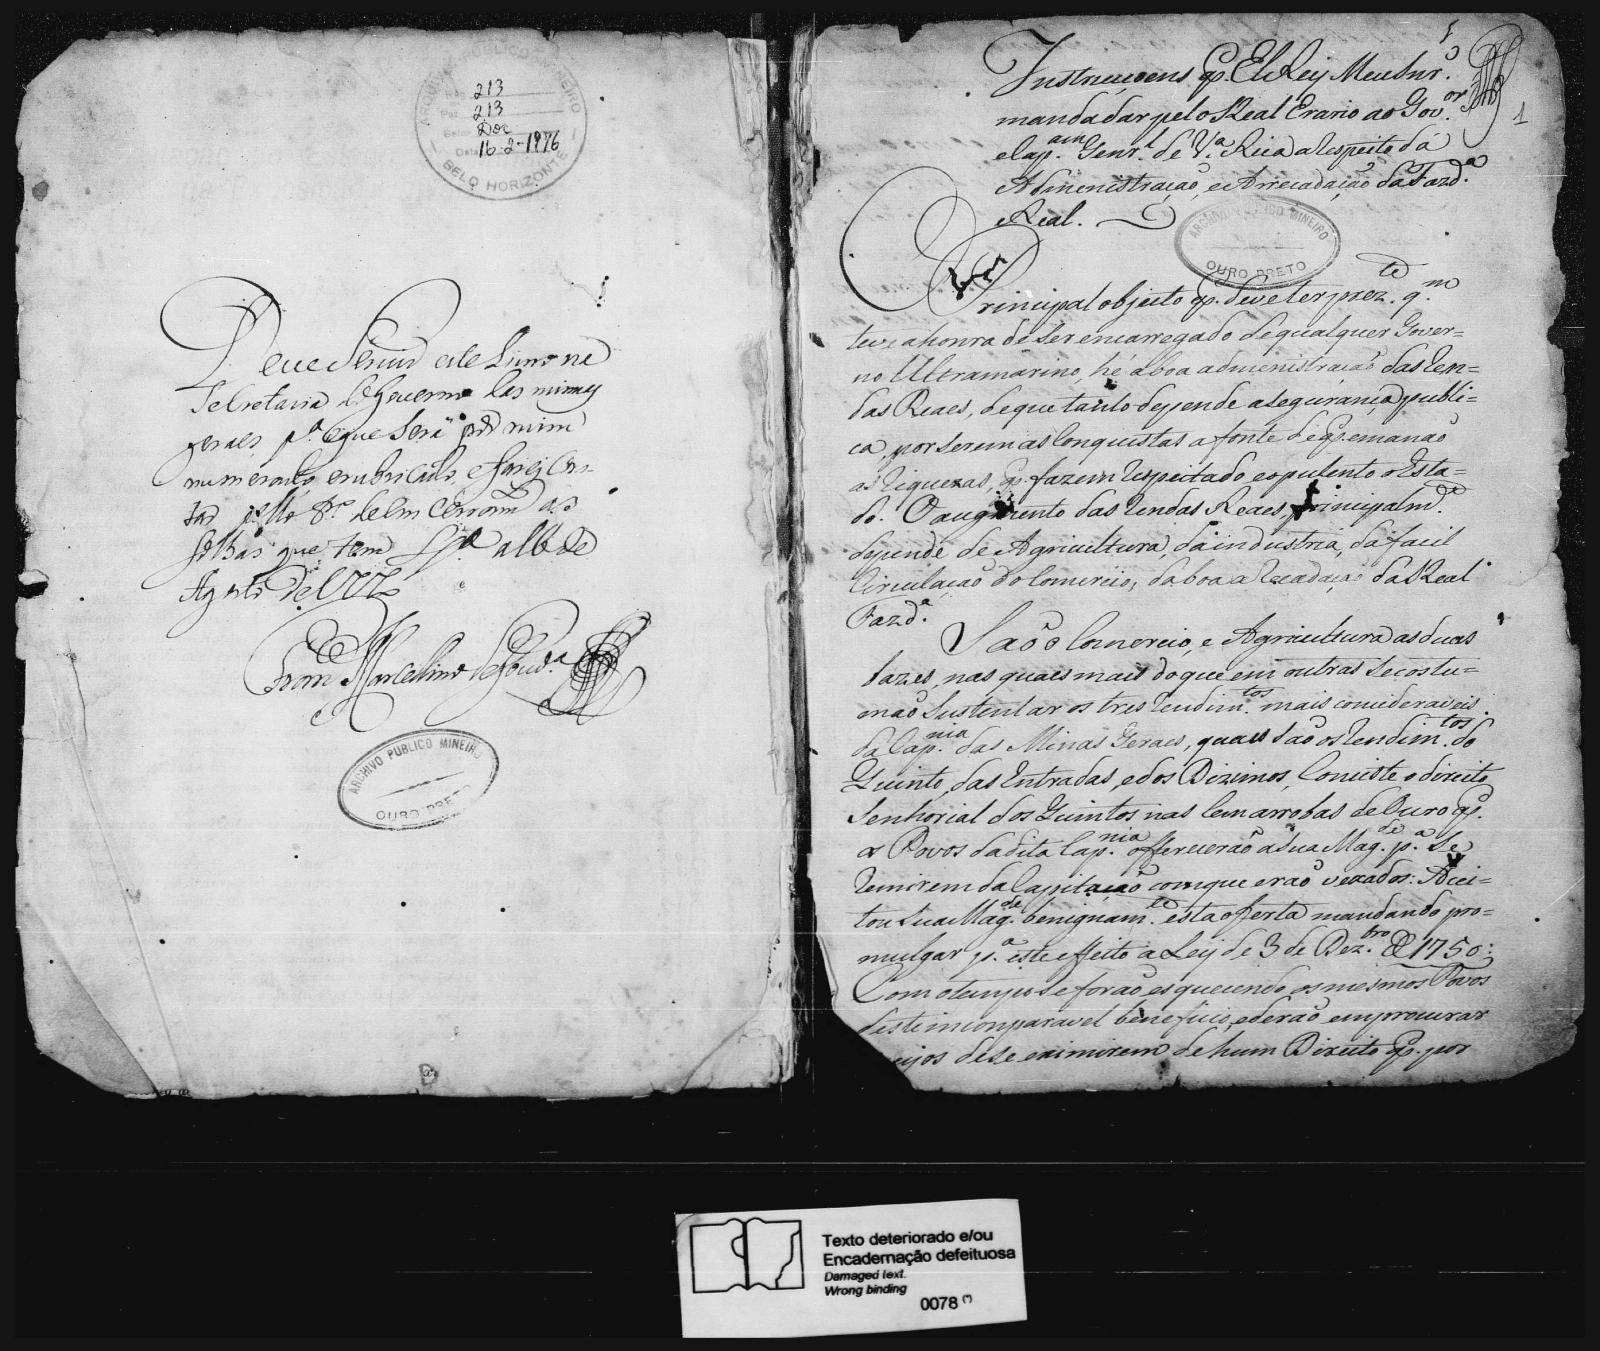 ARQUIVO PUBLICO MINEIRO
213
213
Doc
Data 16-2-1976
BELO HORIZONTE
Deve Servir este Livro na
Secretaria do Governo das minas
geraes, pª. o que será por mim
numerado, e rubricado, e
folhas que tem Vª. Rª. de
Agosto de
Franco Marcellino
ARCHIVO PUBLICO MINEIRO
OURO PRETO
1
Instrucçoens q̃. El Rey Meu Snr.
manda dar pelo Real Erario ao Gov.or
e Cap.am Genr.l de V.a Rica a respeito da
Administração, e Arrecadação da Fazd.a
Real.
ARCHIVO PUBLICO MINEIRO
OURO PRETO
O Principal objecto q̃. deve ter prez.te q.m
teve a honra de ser encarregado de qualquer Gover=
no Ultramarino, hé a boa administração das Ren=
das Reaes, de que tanto depende a segurança publi=
ca, por serem as Conquistas a fonte de q̃. emanaõ
as riquezas, q̃. fazem respeitado e opulento o Esta=
do. O augmento das rendas Reaes, principalm.te
depende de Agricultura, da industria, da facil
Circulação do Comercio, da boa arrecadação da Real
Fazd.a
Saõ o Comercio, e Agricultura as duas
bazes, nas quaes mais do que em outras se costu=
maõ Sustentar os tres rendim.tos mais consideraveis
da Cap.nia das Minas Geraes, quaes saõ os rendim.tos do
Quinto, das Entradas, e dos Dizimos, Consiste o direito
Senhorial dos Quintos nas Cem arrobas de Ouro q̃.
os Povos da dita Cap.nia offereceraõ á Sua Mag.de p.a Se
remirem da Capitaçaõ com que eraõ vexados: Acei=
tou Sua Mag.de benignam.te esta oferta mandando pro=
mulgar p.a este effeito a Ley de 3 de Dez.bro de 1750:
Com o tempo se foraõ esquecendo os mesmos Povos
deste incomparavel beneficio, e deraõ em procurar
meyos de se eximirem de hum Direito q̃. por
Texto deteriorado e/ou
Encadernação defeituosa
Damaged text.
Wrong binding
0078